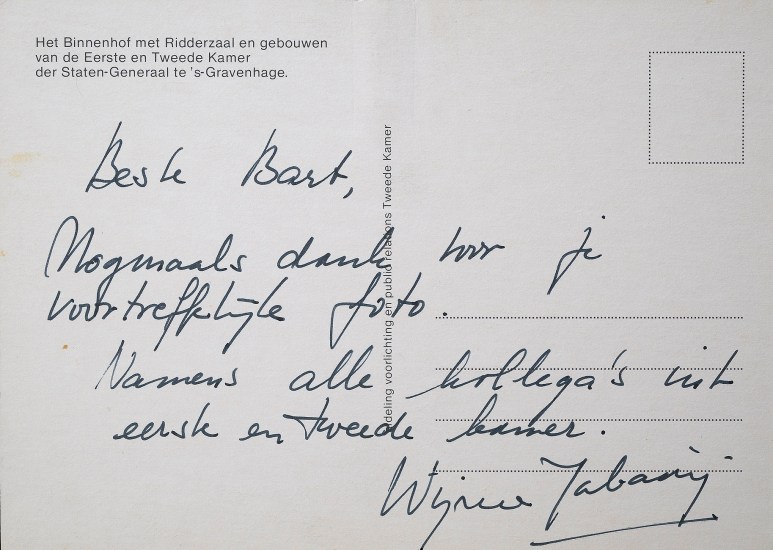 Het Binnenhof met Ridderzaal en gebouwen
van de Eerste en Tweede Kamer
der Staten-Generaal te 's-Gravenhage.
Beste Bart,
Nogmaals dank voor je
voortreffelijke foto.
Namens alle kollega's uit
eerste en tweede kamer.
deling voorlichting en public relations Tweede Kamer